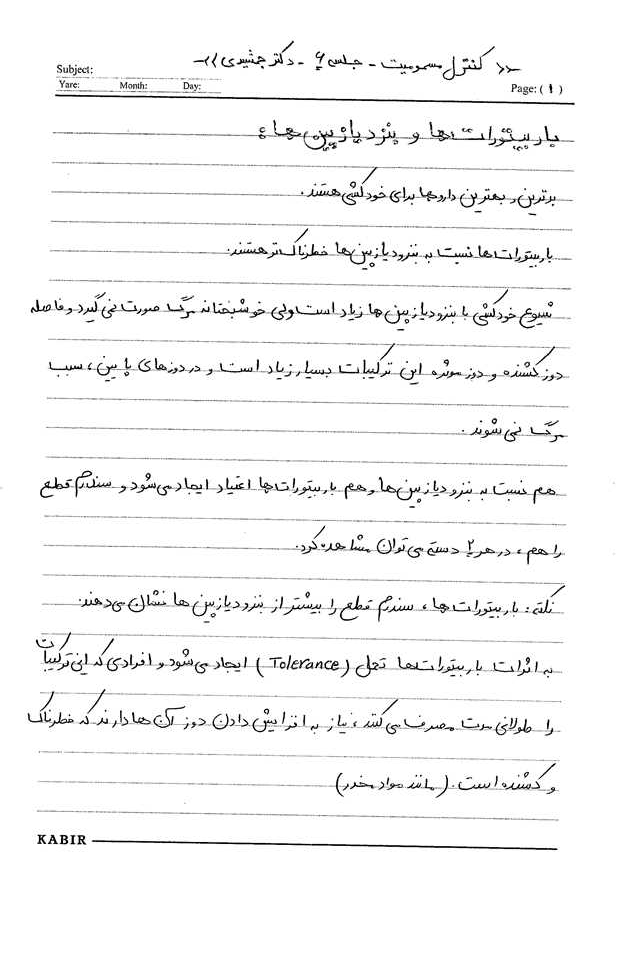 « کنترل مسمومیت - جلسه ۶ - دکتر جمشیدی »
Subject:
Yare: Month: Day: Page: ( ۱ )
باربیتورات‌ها و بنزودیازپین‌ها:
برترین و بهترین داروها برای خودکشی هستند.
باربیتورات‌ها نسبت به بنزودیازپین‌ها خطرناک‌تر هستند.
شیوع خودکشی با بنزودیازپین‌ها زیاد است ولی خوشبختانه مرگ صورت نمی‌گیرد و فاصله
دوز کشنده و دوز موثره این ترکیبات بسیار زیاد است و در دوزهای پایین، سبب
مرگ نمی‌شوند.
هم نسبت به بنزودیازپین‌ها و هم باربیتورات‌ها اعتیاد ایجاد می‌شود و سندرم قطع
را هم، در هر ۲ دسته می‌توان مشاهده کرد.
نکته: باربیتورات‌ها، سندرم قطع را بیشتر از بنزودیازپین‌ها نشان می‌دهند.
به اثرات باربیتورات‌ها تحمل (Tolerance) ایجاد می‌شود و افرادی که این ترکیبات
را طولانی مدت مصرف می‌کنند، نیاز به افزایش دادن دوز آن‌ها دارند که خطرناک
و کشنده است. (مانند مواد مخدر)
KABIR